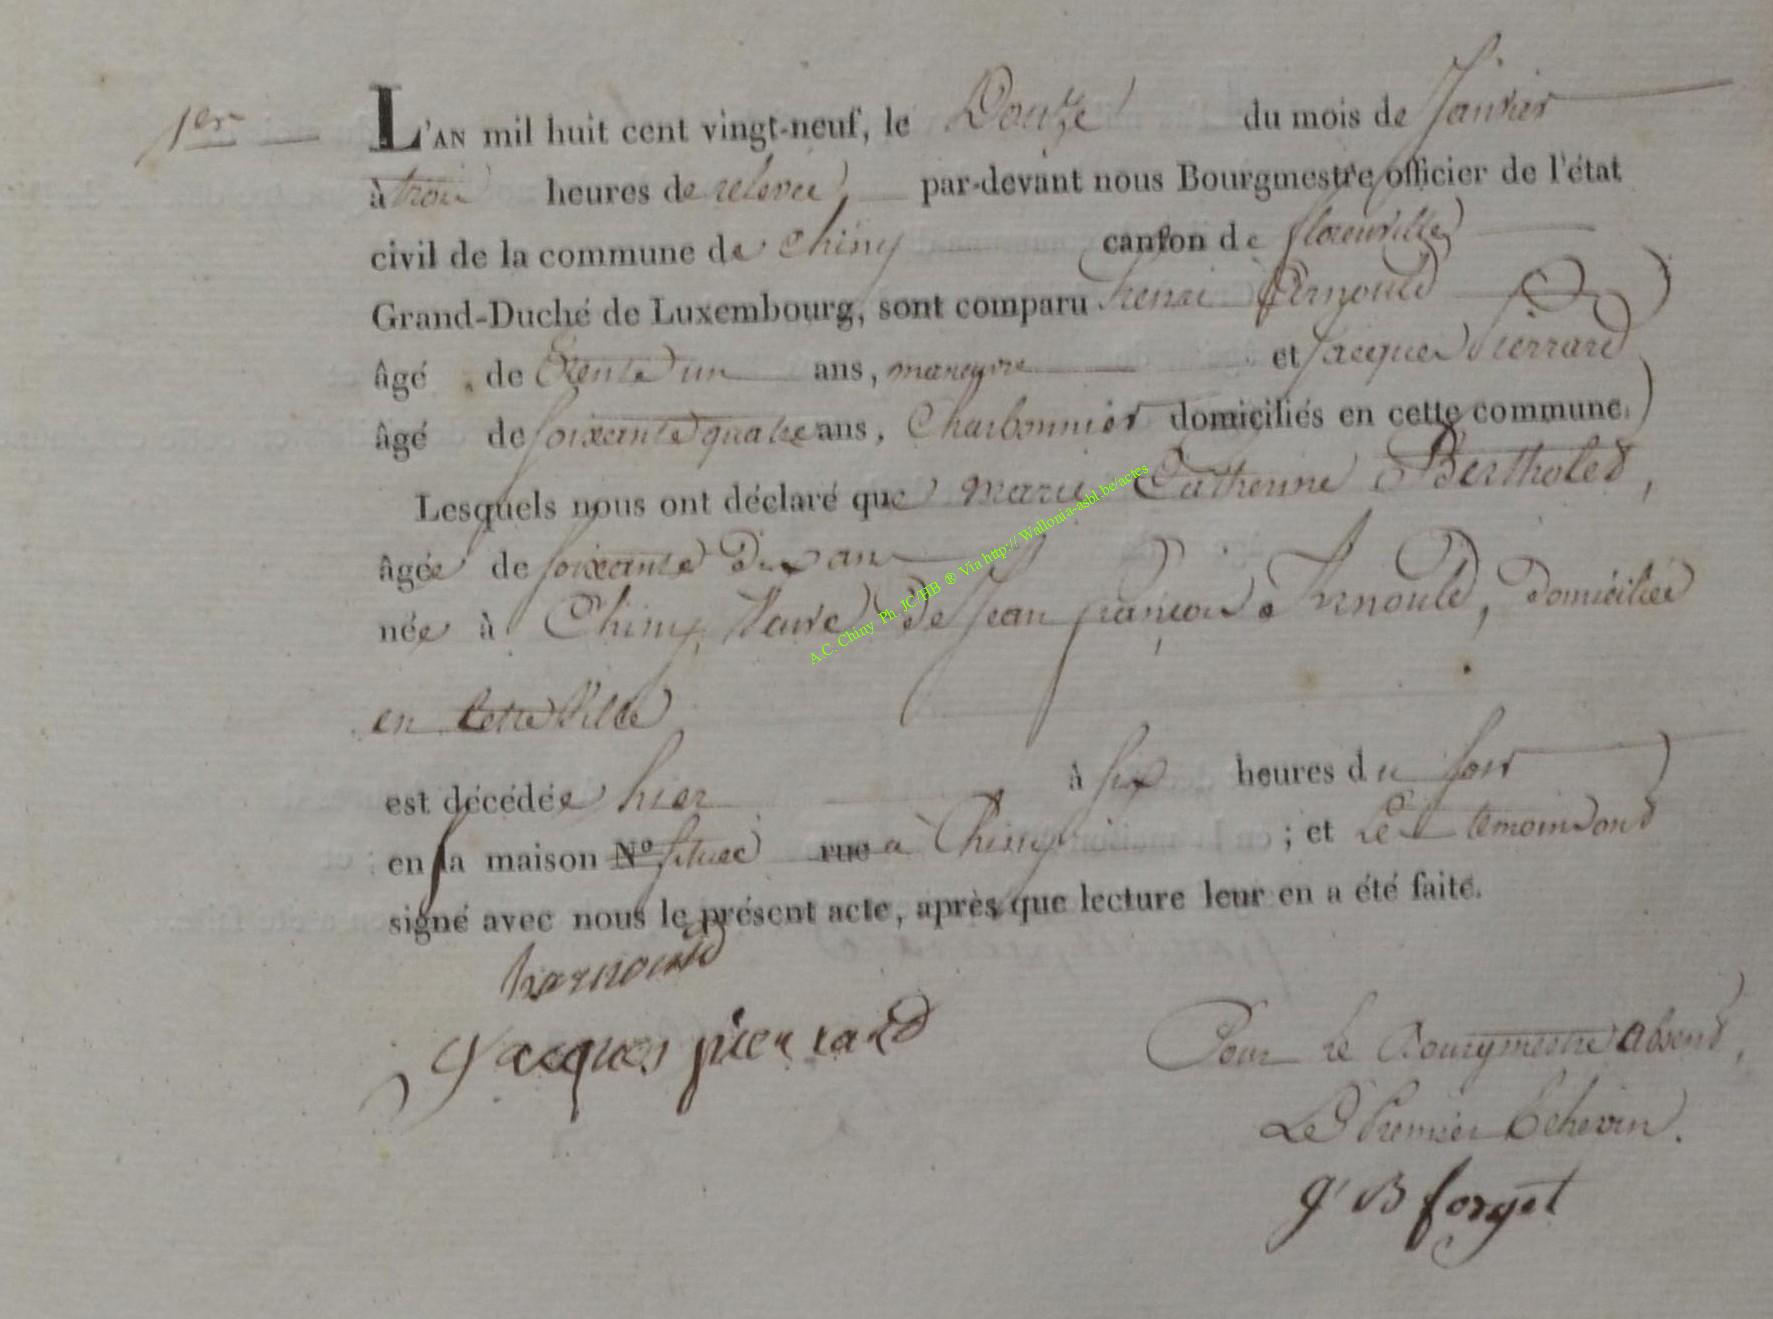 1er
L'AN mil huit cent vingt-neuf, le Douze du mois de Janvier
à trois heures de relevée par-devant nous Bourgmestre officier de l'état
civil de la commune de Chiny canton de florenville
Grand-Duché de Luxembourg, sont comparu henri Arnould
âgé de trente un ans, maneuvre et Jacques Pierrard
âgé de soixante quatre ans, Charbonnier domiciliés en cette commune.
Lesquels nous ont déclaré que marie Catherine Bertholet,
âgée de soixante dix ans
née à Chiny, Veuve de Jean françois Arnould, domiciliée
en cette Ville
est décédée hier à six heures du soir
en sa maison N° située rue à Chiny ; et les témoins ont
signé avec nous le présent acte, après que lecture leur en a été faite.
harnould
Jacques pierrard
Pour le Bourgmestre absent,
Le Premier Echevin.
J B forget
A.C. Chiny Ph. JC HB ® Via http:// Wallonia-asbl.be/actes